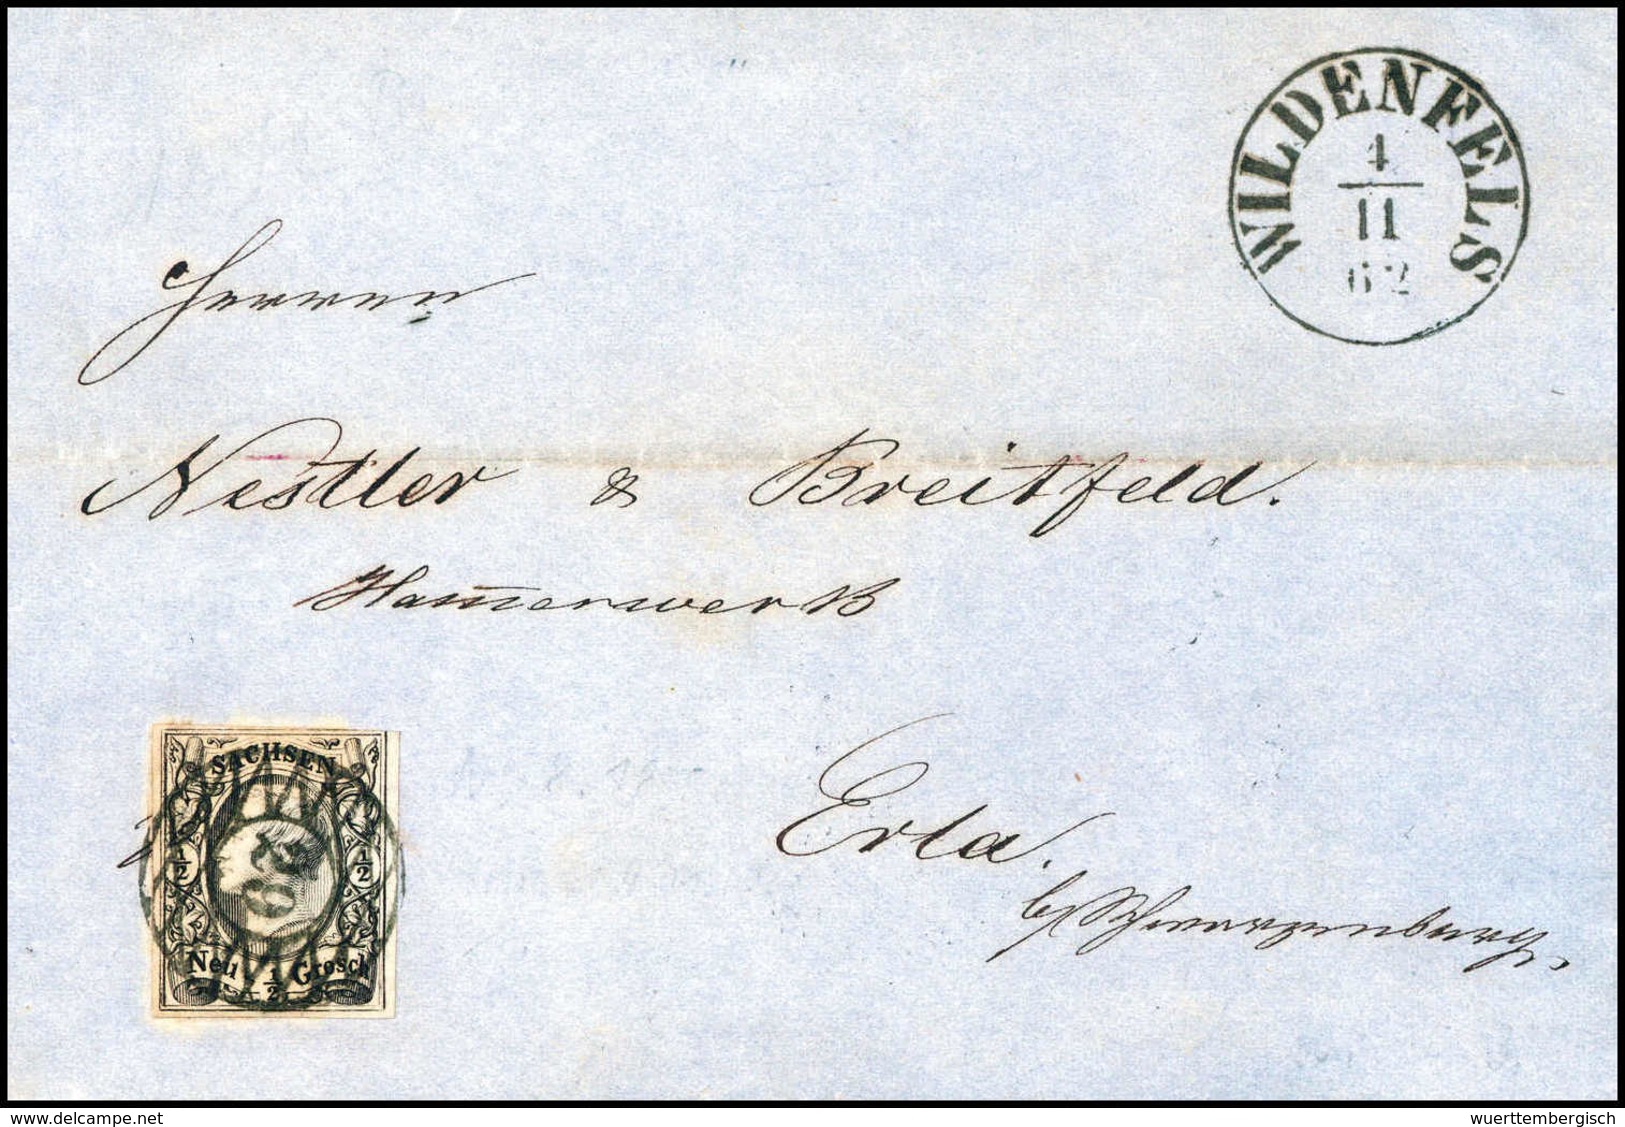 WILDENFELS
4
11
62
Herren
Nestler & Breitfeld.
Ham̅erwerk
Erla.
b/Schwarzenburg.
SACHSEN
1/2 1/2
Neu 1/2 Grosch
delcampe.net
wuerttembergisch